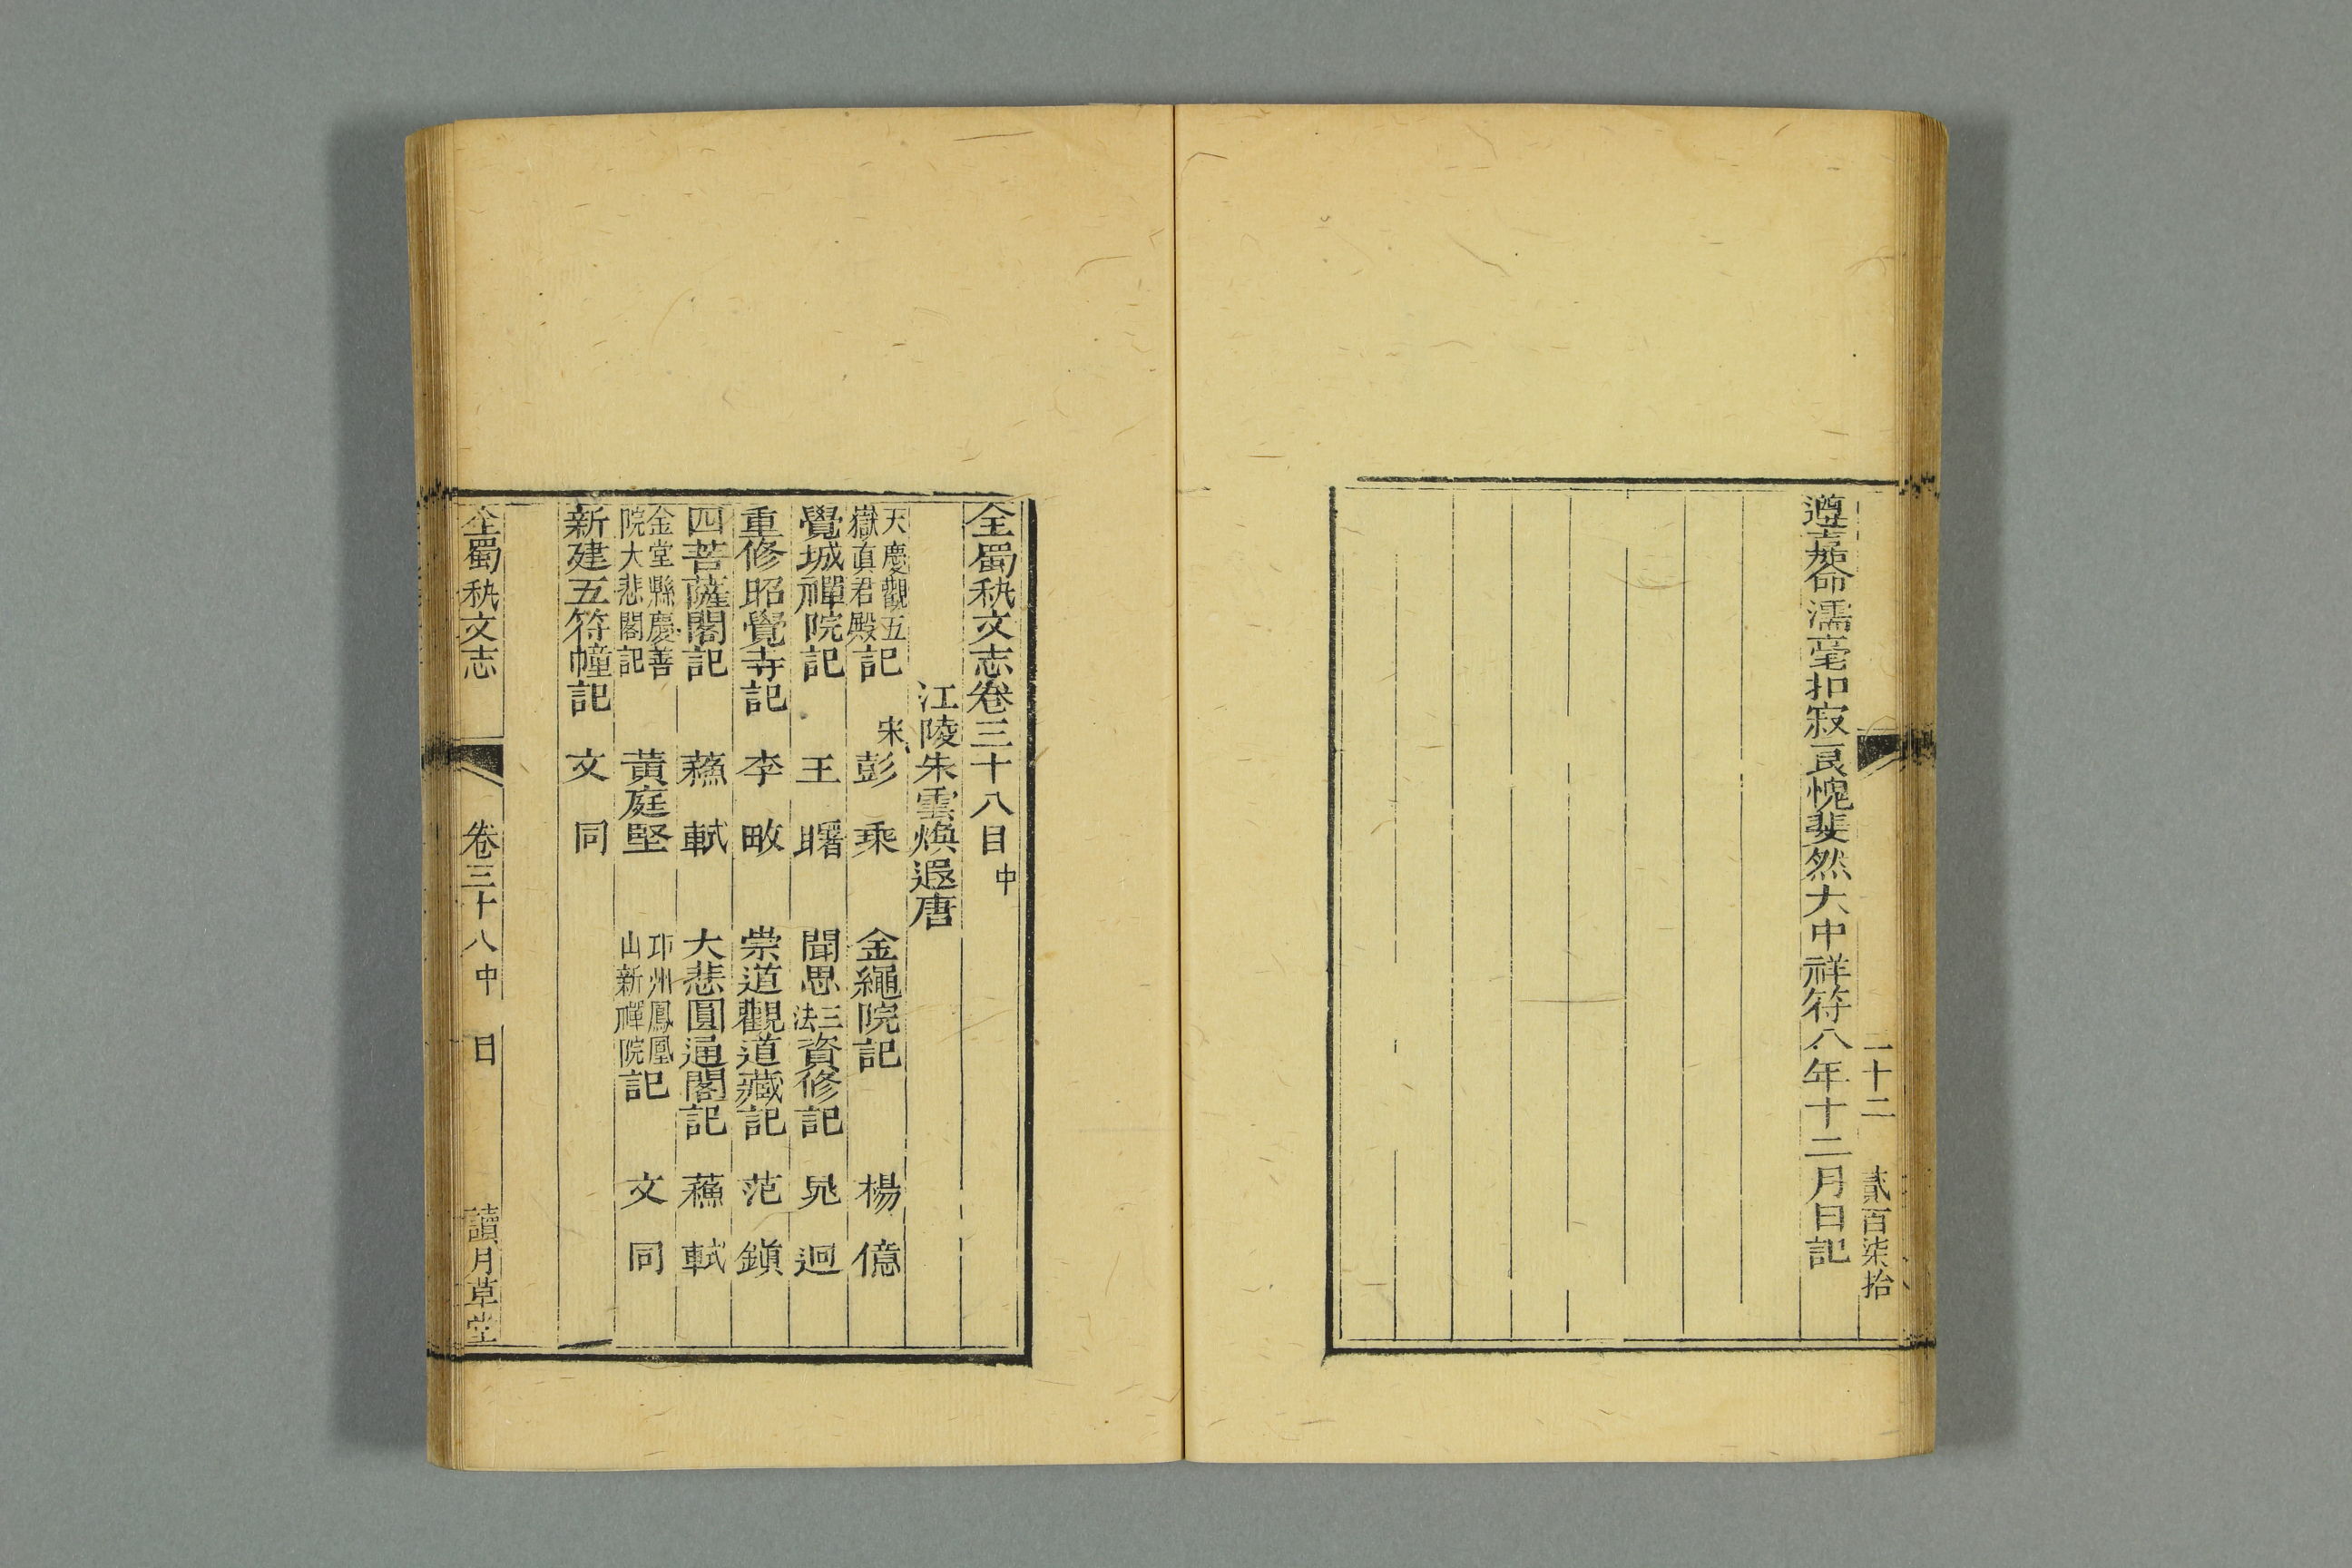 遵吉使命濡毫扣寂良愧斐然大中祥符八年十二月日記
二十二 貳百柒拾
全蜀秇文志卷三十八目中
江陵朱雲煥遐唐
天慶觀五嶽眞君殿記 宋彭乘 金繩院記 楊億
覺城禪院記 王曙 聞思三法資修記 晁迥
重修昭覺寺記 李畋 崇道觀道藏記 范鎮
四菩薩閣記 蘇軾 大悲圓通閣記 蘇軾
金堂縣慶善院大悲閣記 黃庭堅 邛州鳳凰山新禪院記 文同
新建五符幢記 文同
全蜀秇文志 卷三十八中 目 讀月草堂